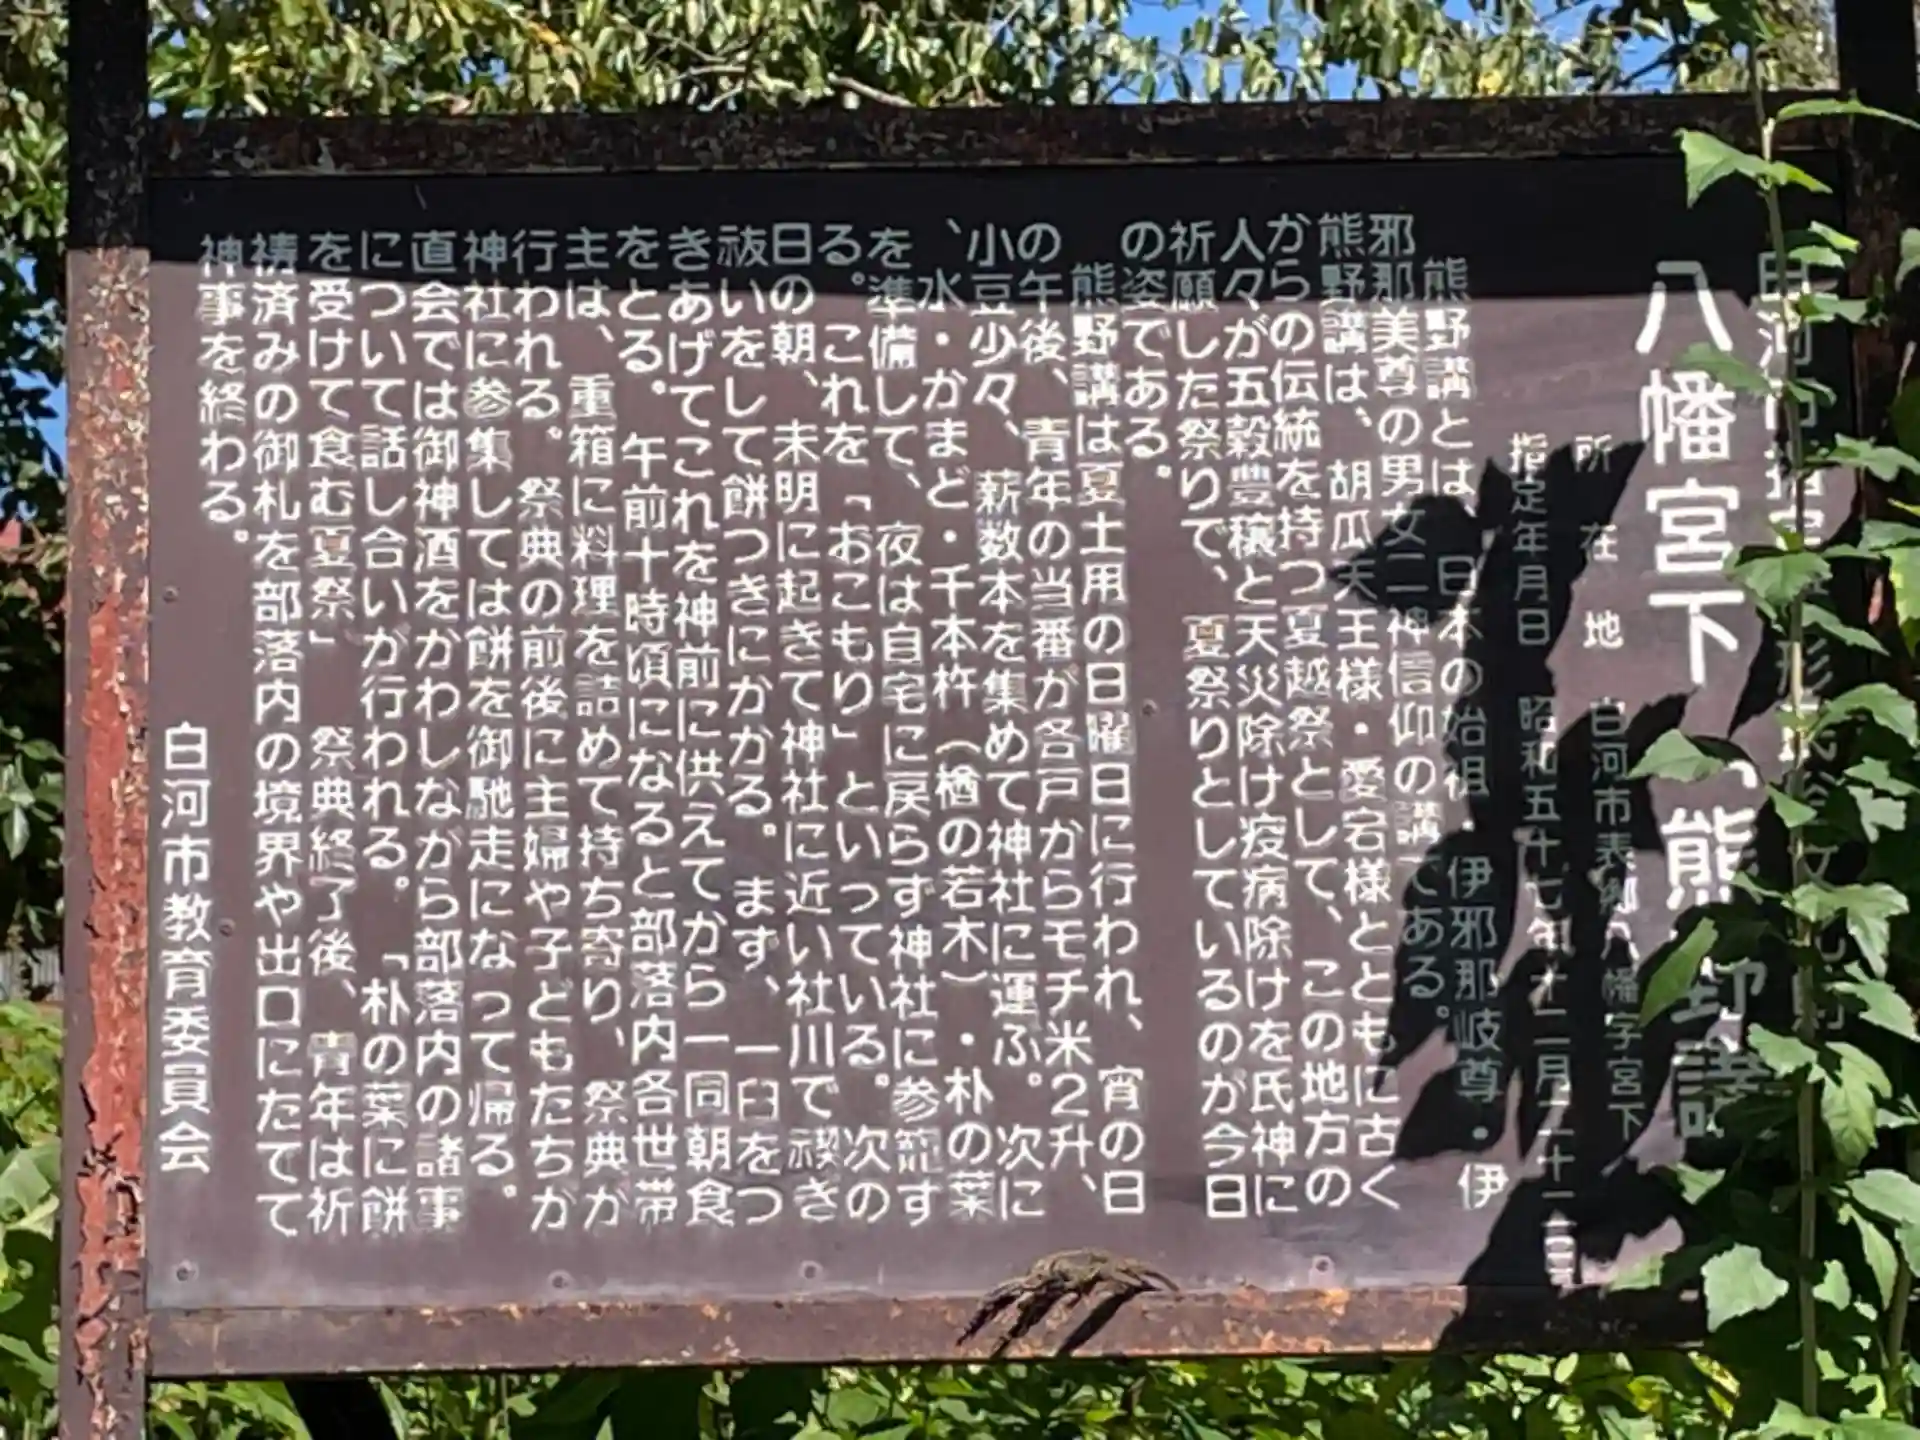 白河市指定 形民俗文化財
八幡宮下 熊野講
所在地 白河市表郷八幡字宮下
指定年月日 昭和五十七年十二月二十一日
熊野講とは、日本の始祖、伊邪那岐尊・伊
邪那美尊の男女二神信仰の講である。
熊野講は、胡瓜天王様・愛宕様とともに古く
からの伝統を持つ夏越祭として、この地方の
人々が五穀豊穣と天災除け疫病除けを氏神に
祈願した祭りで、夏祭りとしているのが今日
の姿である。
熊野講は夏土用の日曜日に行われ、宵の日
の午後、青年の当番が各戸からモチ米2升、
小豆少々、薪数本を集めて神社に運ぶ。次に
、水・かまど・千本杵(楢の若木)・朴の葉
を準備して、夜は自宅に戻らず神社に参籠す
る。これを「おこもり」といっている。次の
日の朝、未明に起きて神社に近い社川で禊き
祓いをして餅つきにかかる。まず、一臼をつ
きあげてこれを神前に供えてから一同朝食
をとる。午前十時頃になると部落内各世帯
主は、重箱に料理を詰めて持ち寄り、祭典が
行われる。祭典の前後に主婦や子どもたちが
神社に参集しては餅を御馳走になって帰る。
直会では御神酒をかわしながら部落内の諸事
について話し合いが行われる。「朴の葉に餅
を受けて食む夏祭」祭典終了後、青年は祈
祷済みの御札を部落内の境界や出口にたてて
神事を終わる。
白河市教育委員会